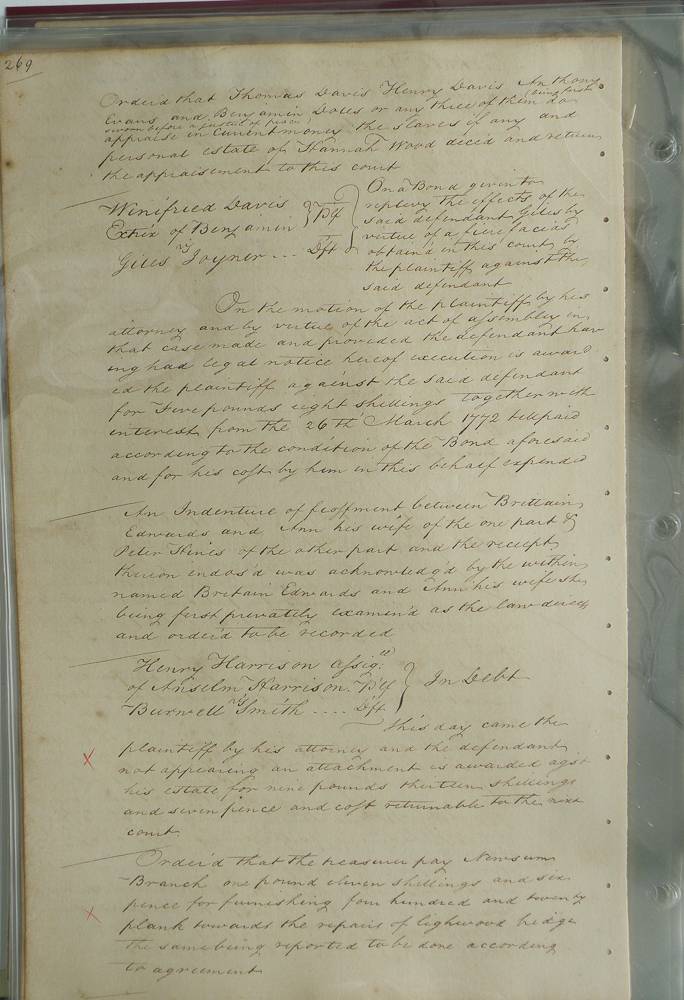 269
Order'd that Thomas Davis Henry Davis Anthony
Evans and Benjamin Doles or any three of them (being first
sworn before a Justice of peace) do
appraise in Current money the slaves if any and
personal estate of Hannah Wood decd and return
the appraisement to this court
Winifried Davis
Extrix of Benjamin } Plf
vs
Giles Joyner ... Dft
On a Bond given to
replevy the effects of the
said defendant Giles by
virtue of a fierefacias
obtain'd in this court by
the plaintiff against the
said defendant
On the motion of the plaintiff by his
attorney and by virtue of the act of assembly in
that case made and provided the defendant hav
ing had legal notice hereof execution is award
ed the plaintiff against the said defendant
for Five pounds eight shillings together with
interest from the 26th March 1772 till paid
according to the condition of the Bond aforesaid
and for his cost by him in this behalf expended
An Indenture of feoffment between Brittain
Edwards and Ann his wife of the one part &
Peter Hines of the other part and the receipt
thereon indos'd was acknowledg'd by the within
named Britain Edwards and Ann his wife she
being first privately examin'd as the law directs
and order'd to be recorded
Henry Harrison assig.
of Anselm Harrison. Plf
vs
Burwell Smith .... Dft
} In Debt
This day came the
plaintiff by his attorney and the defendant
not appearing an attachment is awarded agst
his estate for nine pounds thirteen shillings
and seven pence and cost returnable to the next
court.
Order'd that the treasurer pay Newsum
Branch one pound eleven shillings and six
pence for furnishing four hundred and twenty
plank towards the repairs of lighwood bridge
the same being reported to be done according
to agreement